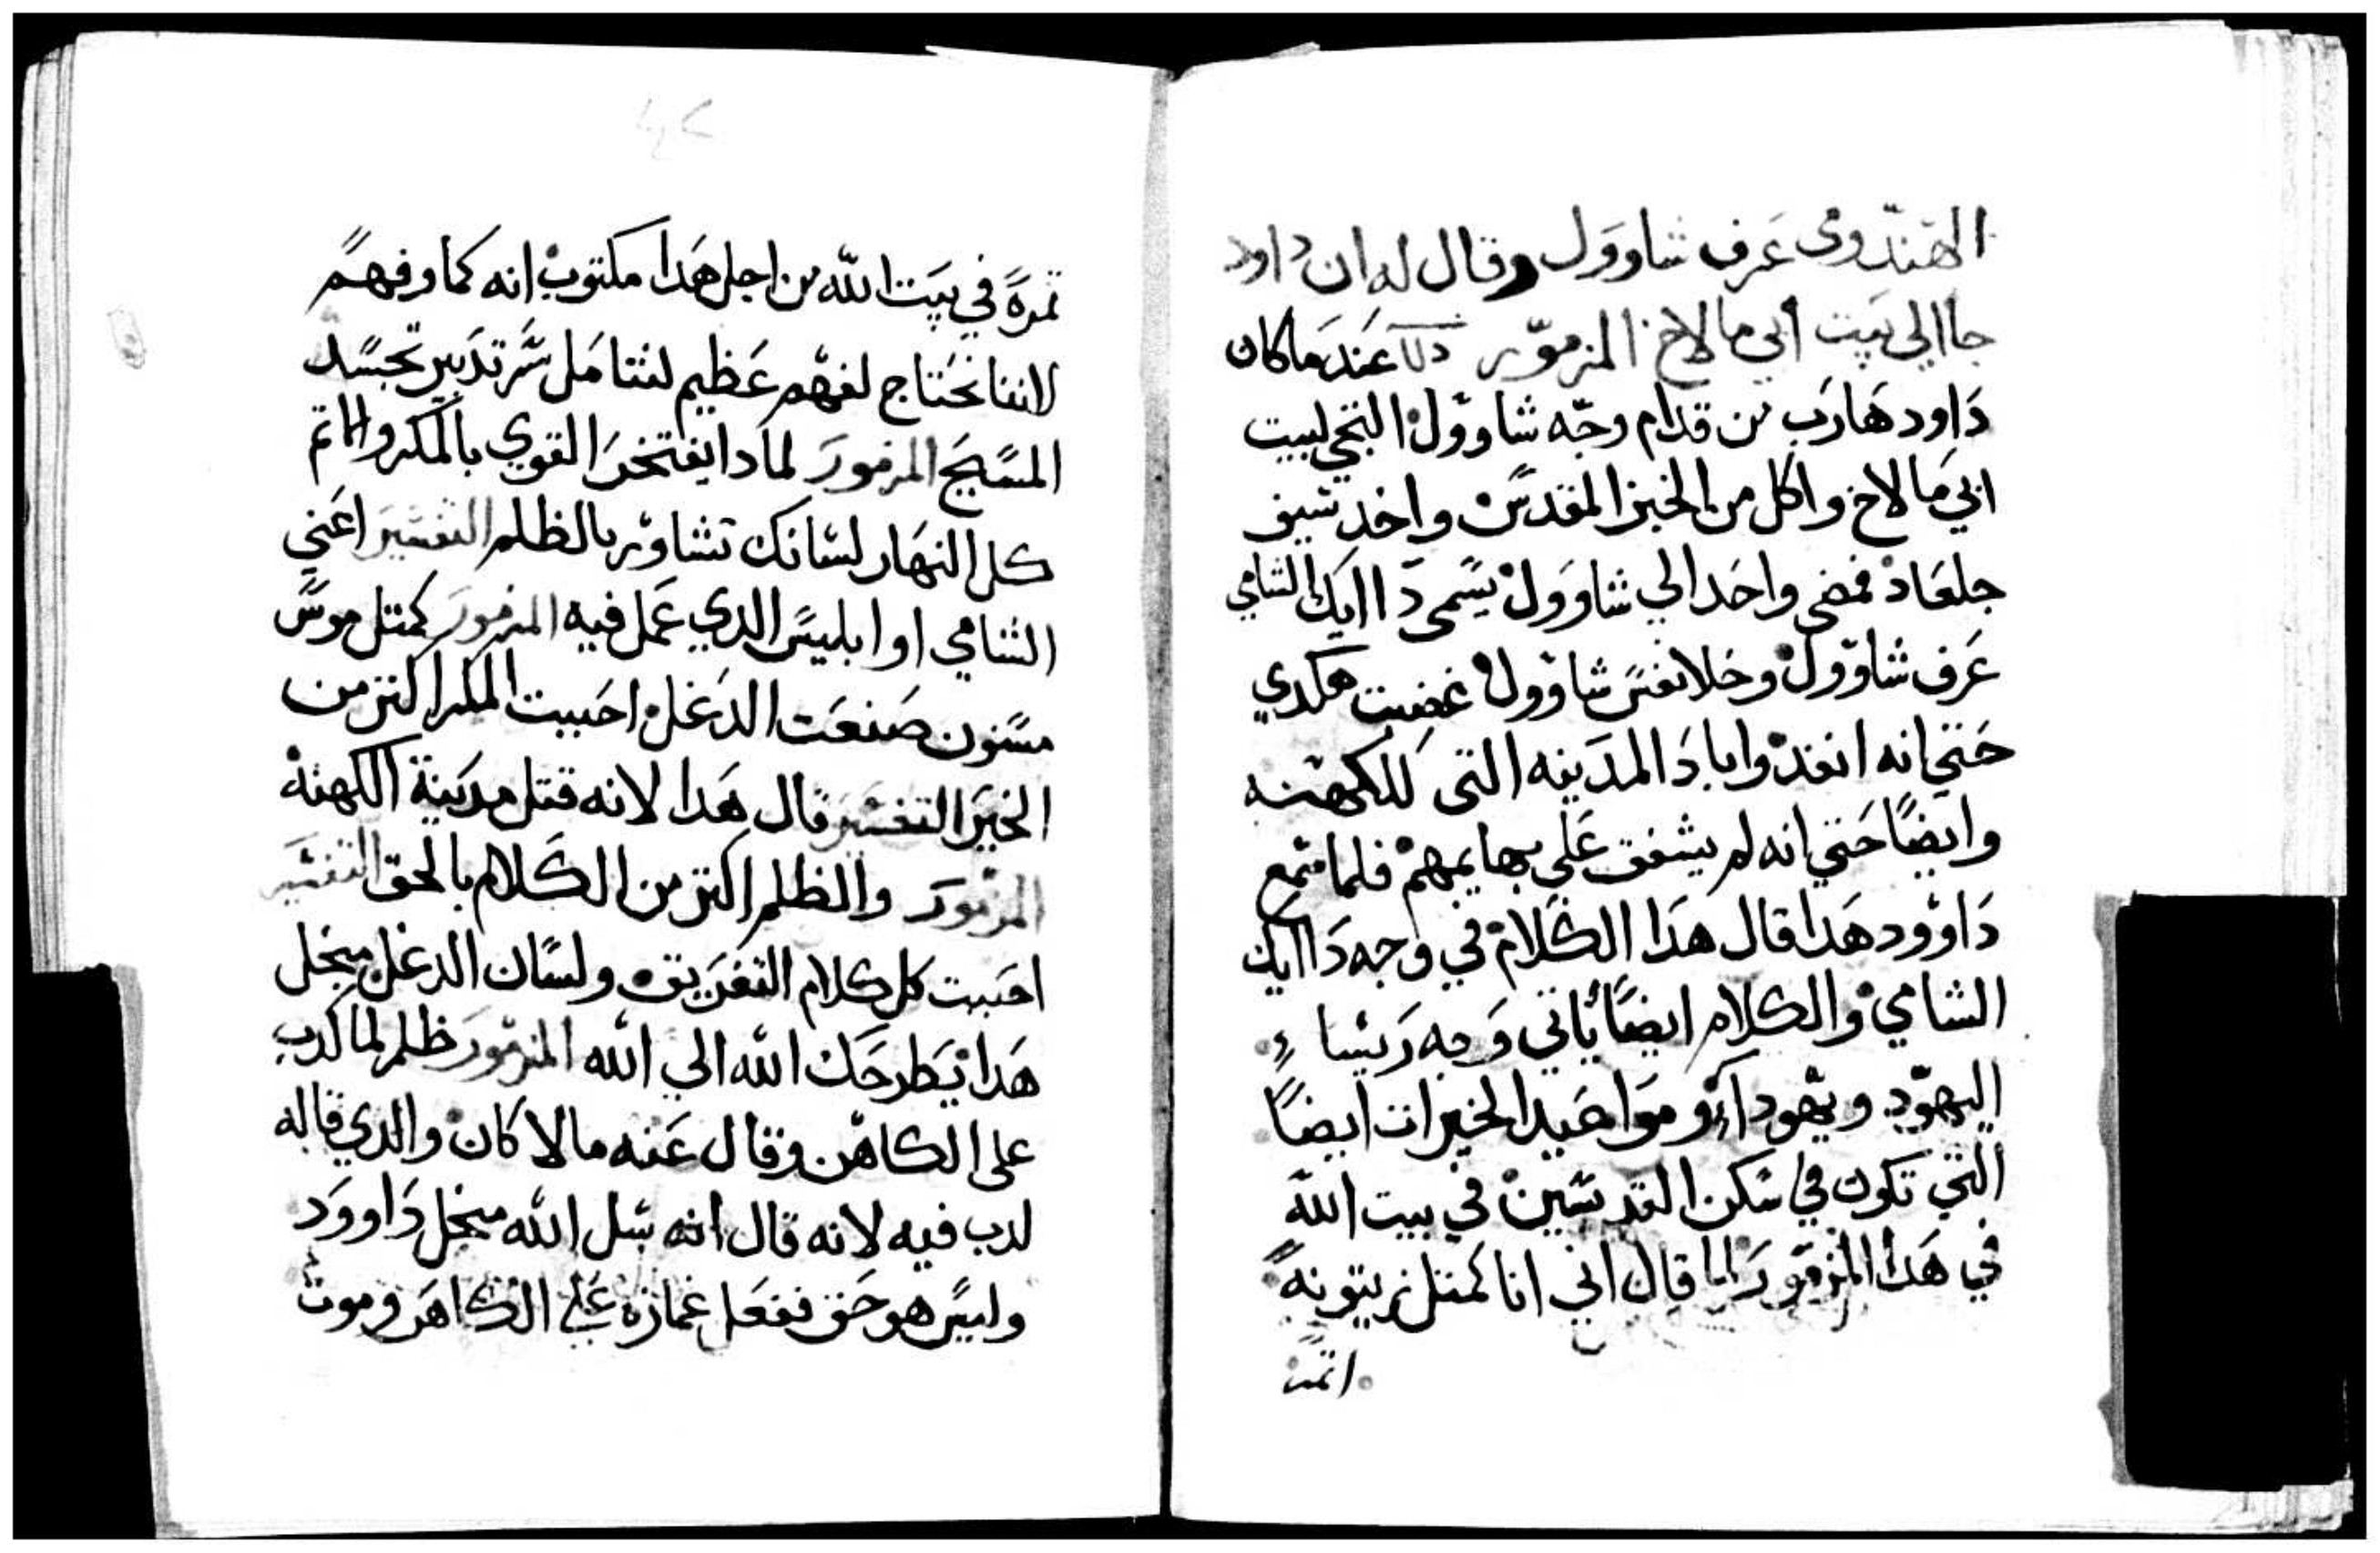 الهندوى عرف شاوول وقال له ان داود
جاالي بيت ابي مالاخ المزمور عندما كان
داود هارب من قدام وجه شاوول التجي لبيت
ابي مالاخ واكل من الخبز المقدس واخد سيف
جلعاد فمضى واحد الي شاوول يسمى داايك الشامي
عرف شاوول وخلا نفس شاوول غضبت هكدي
حتي انه انفد واباد المدينه التى للكهنه
وايضًا حتي انه لم يشفق على بهايمهم فلما سمع
داوود هدا قال هدا الكلام في وجه داايك
الشامي والكلام ايضًا ياتي وجه ريسا
اليهود ويهوداء ومواعيد الخيرات ايضًا
التي تكون في سكن القديسين في بيت الله
في هدا المزمور لما قال اني انا كمتل زيتونه
اتمت
تمرة في بيت الله من اجل هدا مكتوب انه كما وفهم
لاننا نحتاج لفهم عظيم لنتامل سر تدبير تجسد
المسيح المزمور لمادا يفتخر القوي بالمكر والاتم
كل النهار لسانك تشاور بالظلم التفسير اعني
الشامي او ابليس الدي عمل فيه المزمور كمتل موس
مسنون صنعت الدغل احببت المكر اكتر من
الخير التفسير قال هدا لانه قتل مدينة الكهنة
المزمور والظلم اكتر من الكلام بالحق التفسير
احببت كل كلام التغريق ولسان الدغل من اجل
هدا يطرحك الله الي الله المزمور ظلم لما كدب
على الكاهن وقال عنه مالا كان والدي قاله
كدب فيه لانه قال انه سل الله من اجل داوود
وليس هو حق ففعل غمازه على الكاهن وموت